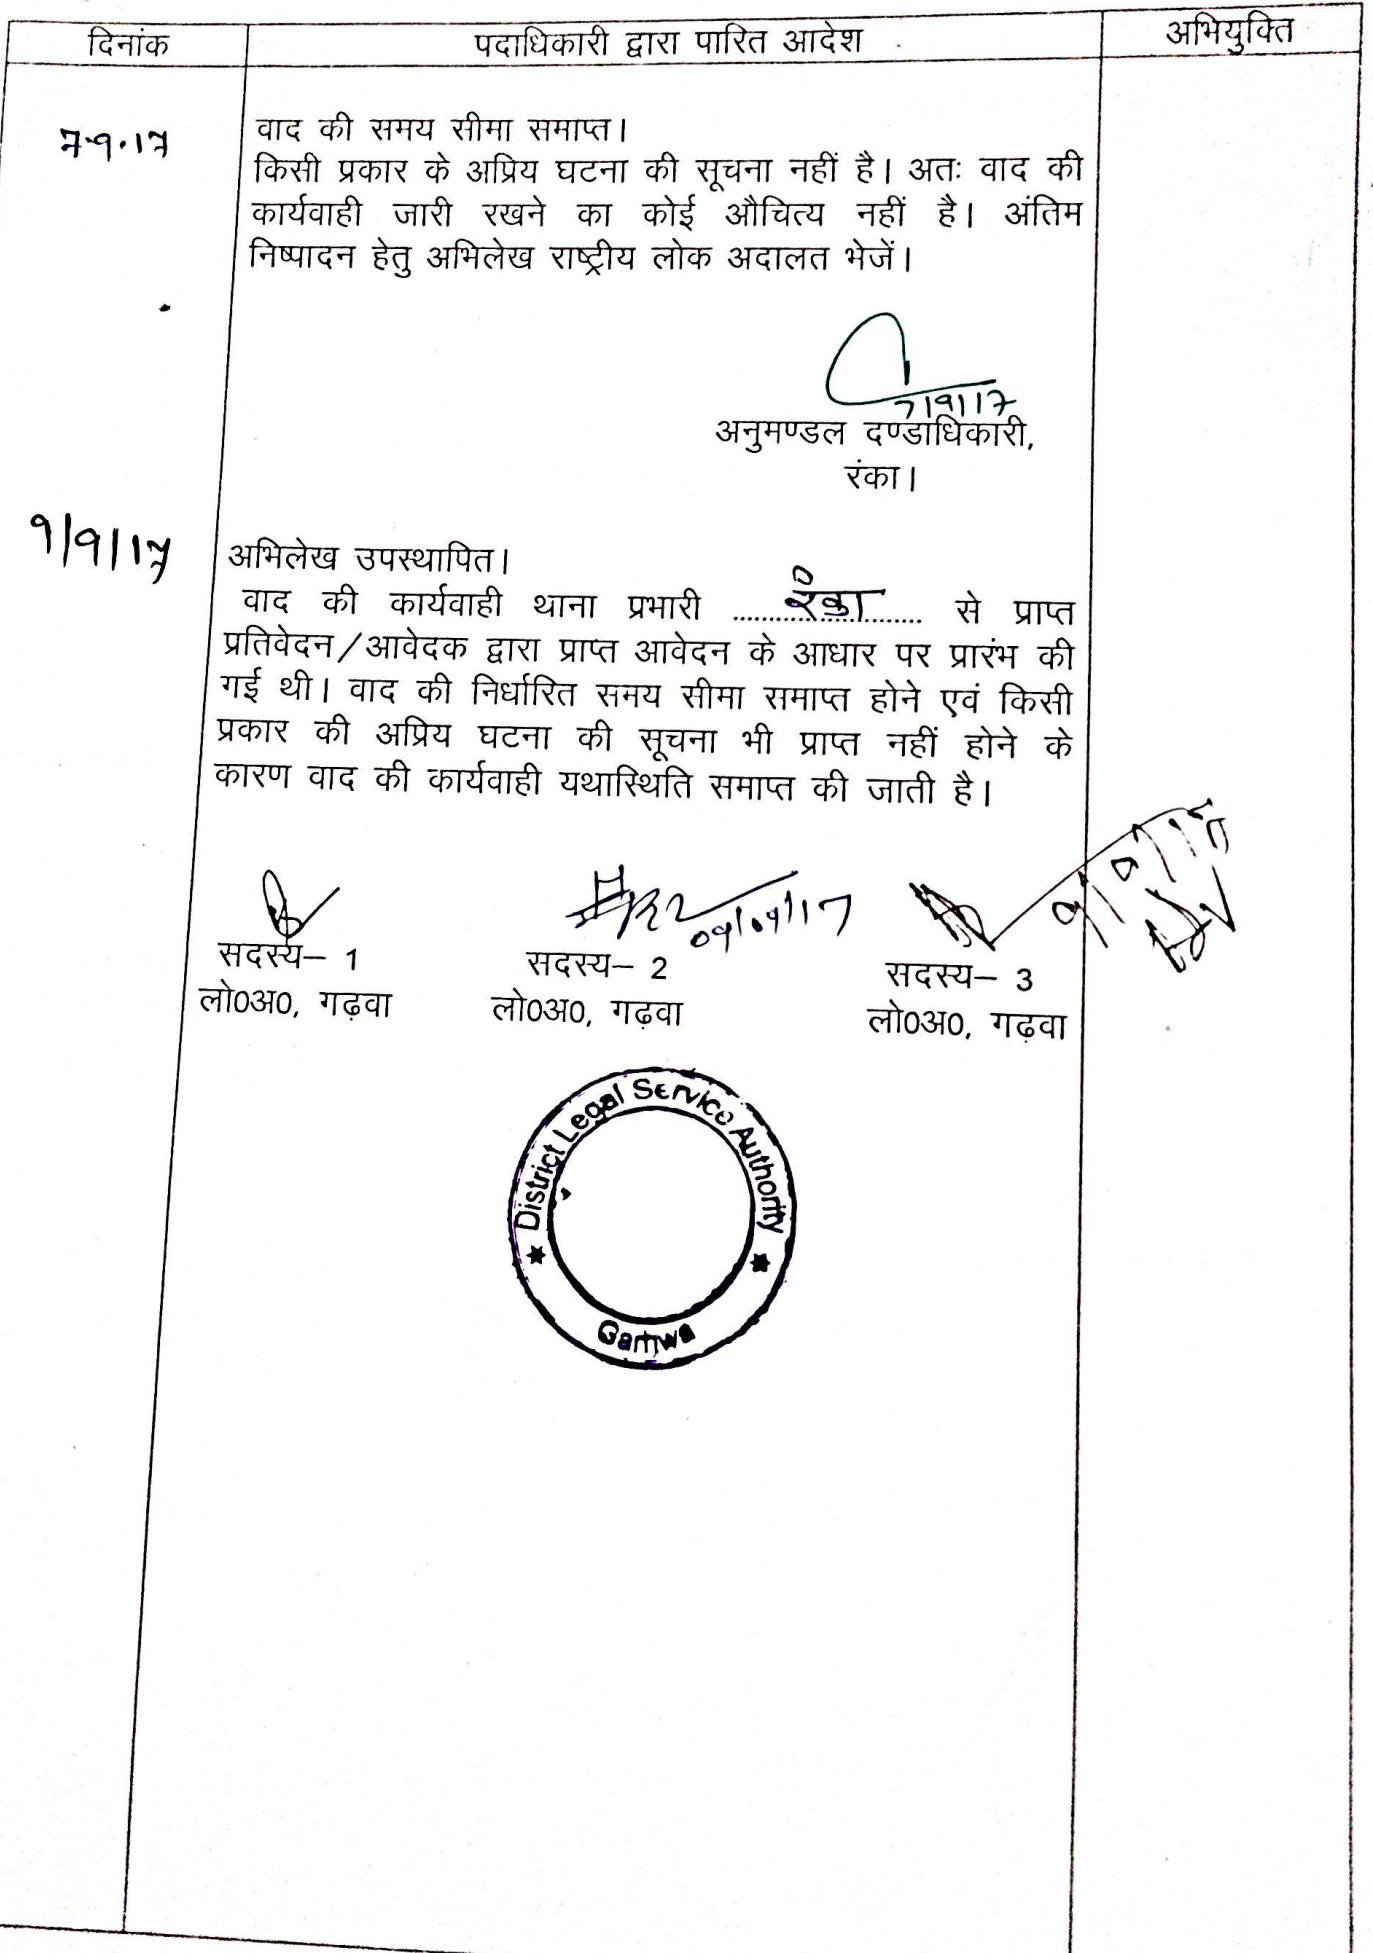 दिनांक पदाधिकारी द्वारा पारित आदेश अभियुक्ति
7-9-17 वाद की समय सीमा समाप्त।
किसी प्रकार के अप्रिय घटना की सूचना नहीं है। अतः वाद की
कार्यवाही जारी रखने का कोई औचित्य नहीं है। अंतिम
निष्पादन हेतु अभिलेख राष्ट्रीय लोक अदालत भेजें।
7/9/17
अनुमण्डल दण्डाधिकारी,
रंका।
9/9/17 अभिलेख उपस्थापित।
वाद की कार्यवाही थाना प्रभारी रंका से प्राप्त
प्रतिवेदन/आवेदक द्वारा प्राप्त आवेदन के आधार पर प्रारंभ की
गई थी। वाद की निर्धारित समय सीमा समाप्त होने एवं किसी
प्रकार की अप्रिय घटना की सूचना भी प्राप्त नहीं होने के
कारण वाद की कार्यवाही यथास्थिति समाप्त की जाती है।
09/09/17 9/9/17
सदस्य– 1 सदस्य– 2 सदस्य– 3
लो0अ0, गढ़वा लो0अ0, गढ़वा लो0अ0, गढ़वा
District Legal Service Authority
Garhwa